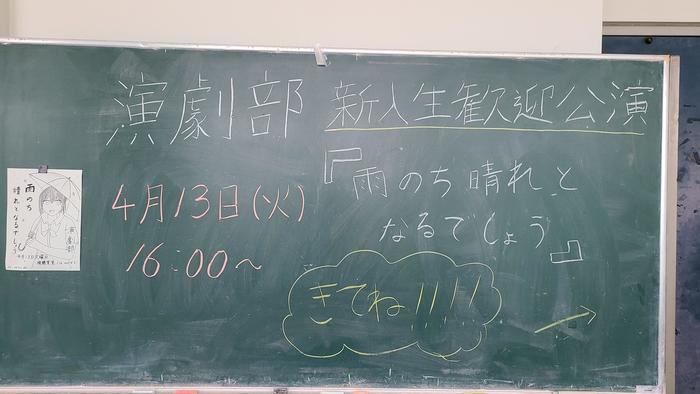 演劇部 新入生歓迎公演
『雨のち晴れと
なるでしょう』
4月13日(火)
16:00~
きてね!!!!
雨のち
晴れとなるでしょう
演劇部